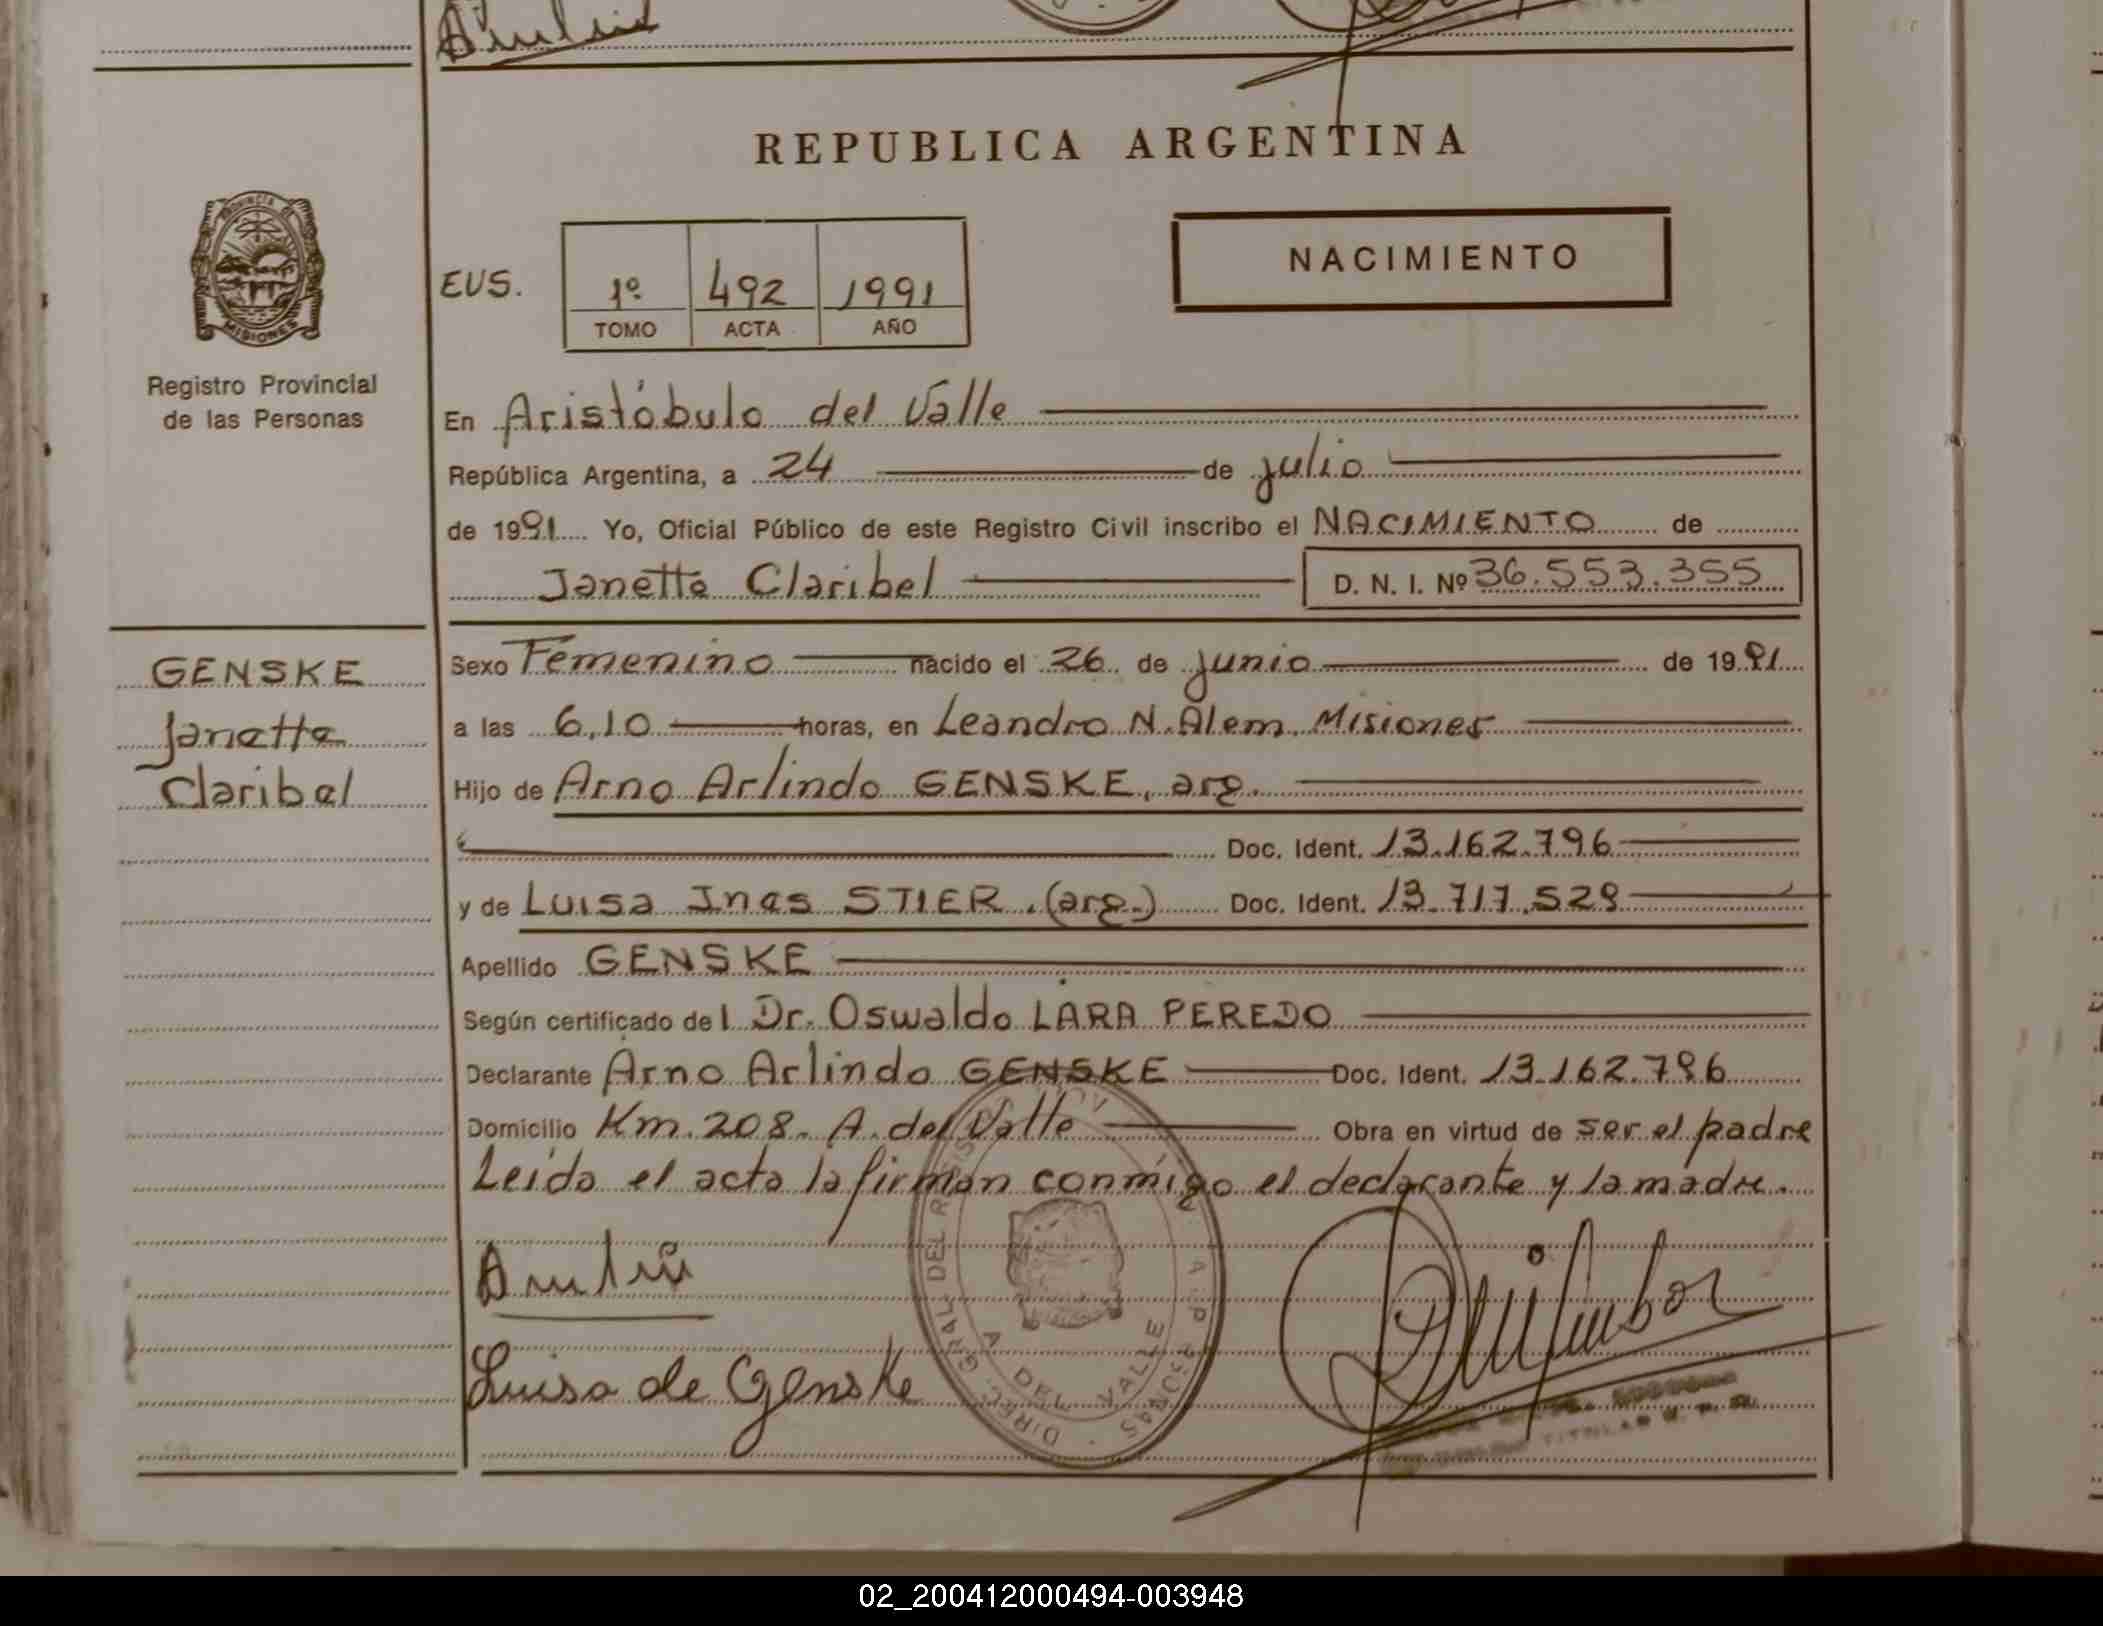 REPUBLICA ARGENTINA
PROVINCIA DE
MISIONES
Registro Provincial
de las Personas
EUS.
1º 492 1991
TOMO ACTA AÑO
NACIMIENTO
En Aristóbulo del Valle
República Argentina, a 24 de julio
de 1991 Yo, Oficial Público de este Registro Civil inscribo el NACIMIENTO de
Janette Claribel D. N. I. Nº 36.553.355
GENSKE
Janette
Claribel
Sexo Femenino nacido el 26 de junio de 1991
a las 6,10 horas, en Leandro N. Alem. Misiones
Hijo de Arno Arlindo GENSKE, arg.
Doc. Ident. 13.162.796
y de Luisa Ines STIER. (arg.) Doc. Ident. 13.717.529
Apellido GENSKE
Según certificado del Dr. Oswaldo LARA PEREDO
Declarante Arno Arlindo GENSKE Doc. Ident. 13.162.796
Domicilio Km. 208. A. del Valle Obra en virtud de ser el padre
Leida el acta la firman conmigo el declarante y la madre.
Luisa de Genske
DIREC. GRAL. DEL
A DEL VALLE
TITULAR
02_200412000494-003948